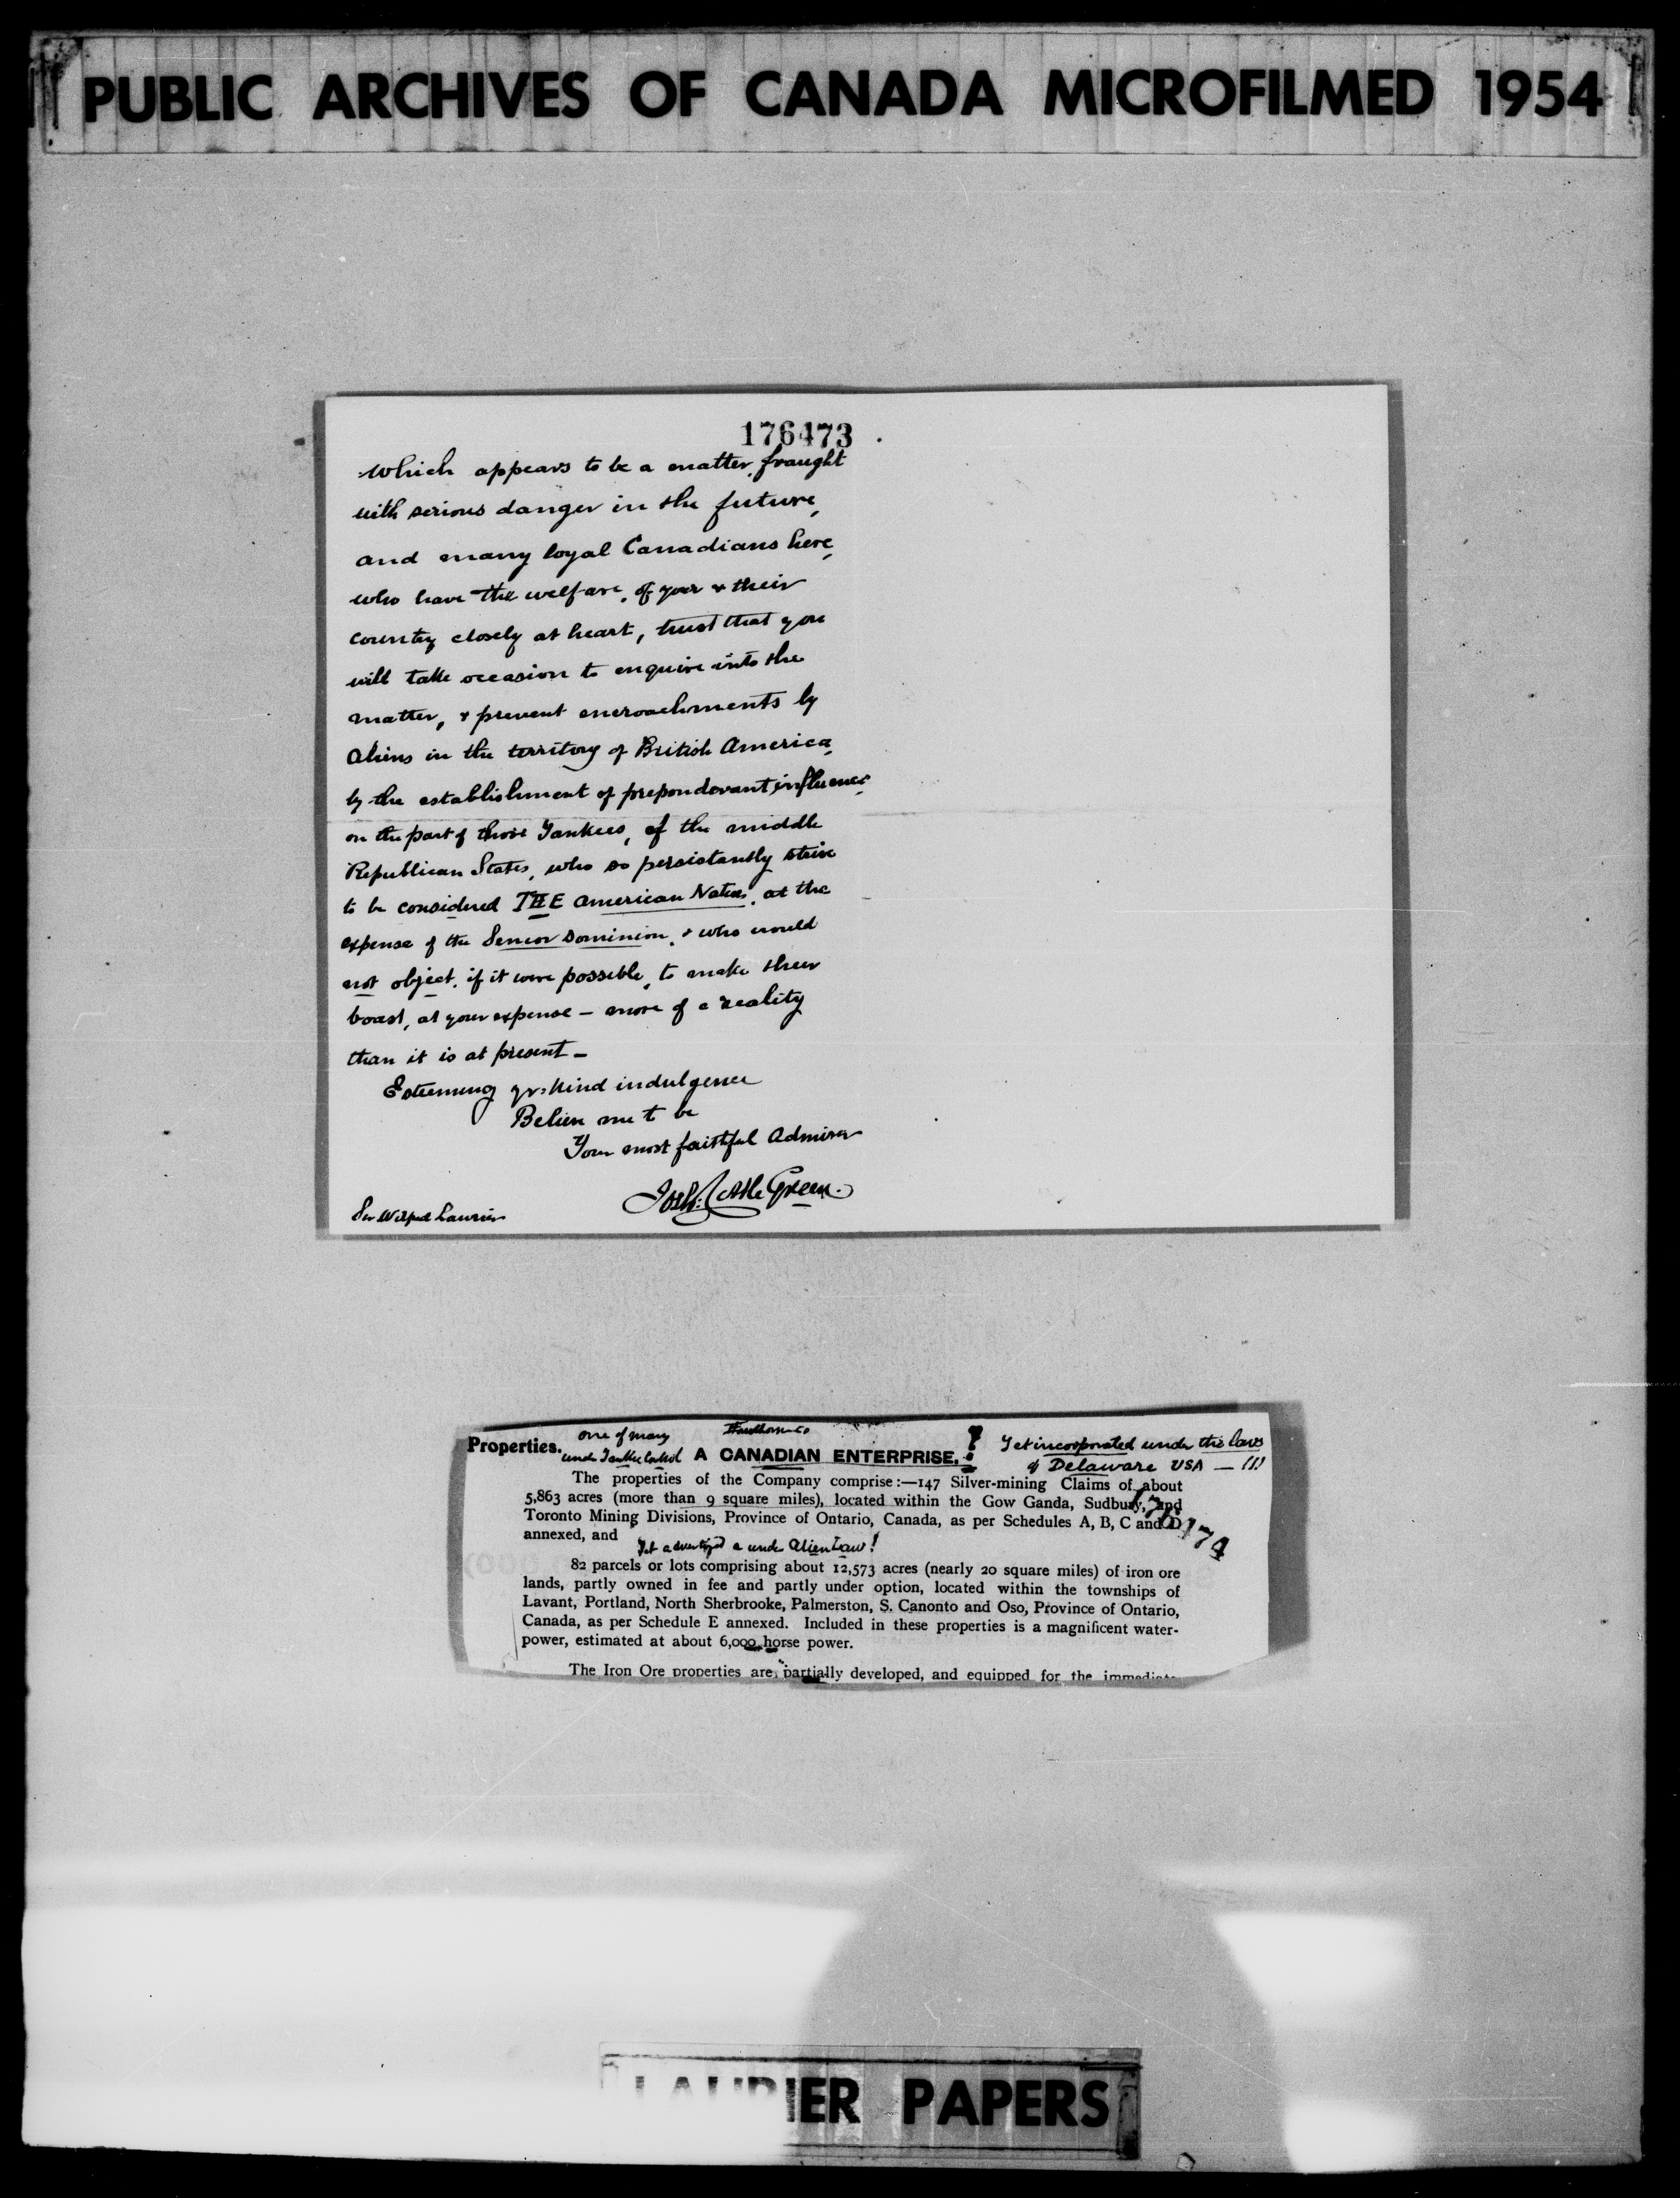 PUBLIC ARCHIVES OF CANADA MICROFILMED 1954
176473
which appears to be a matter fraught
with serious danger in the future,
and many loyal Canadians here,
who have the welfare, of your & their
country closely at heart, trust that you
will take occasion to enquire into the
matter, & prevent encroachments by
Aliens in the territory of British America,
by the establishment of preponderant influence
on the part of those Yankees, of the middle
Republican States, who so persistantly strive
to be considered THE American Nation, at the
expense of the Senior Dominion, & who would
not object, if it were possible, to make their
boast, at your expense - more of a reality
than it is at present -
Esteeming yr. kind indulgence
Believe me to be
Your most faithful Admirer
Green.
Sir Wilfred Laurier
one of many
Properties. under Yankee A CANADIAN ENTERPRISE. ! Yet incorporated under the laws
of Delaware USA - (!)
The properties of the Company comprise:—147 Silver-mining Claims of about
5,863 acres (more than 9 square miles), located within the Gow Ganda, Sudbury, and
Toronto Mining Divisions, Province of Ontario, Canada, as per Schedules A, B, C and D
annexed, and
176474
Yet advertized a under Alien Law!
82 parcels or lots comprising about 12,573 acres (nearly 20 square miles) of iron ore
lands, partly owned in fee and partly under option, located within the townships of
Lavant, Portland, North Sherbrooke, Palmerston, S. Canonto and Oso, Province of Ontario,
Canada, as per Schedule E annexed. Included in these properties is a magnificent water-
power, estimated at about 6,000 horse power.
The Iron Ore properties are partially developed, and equipped for the immediate
LAURIER PAPERS